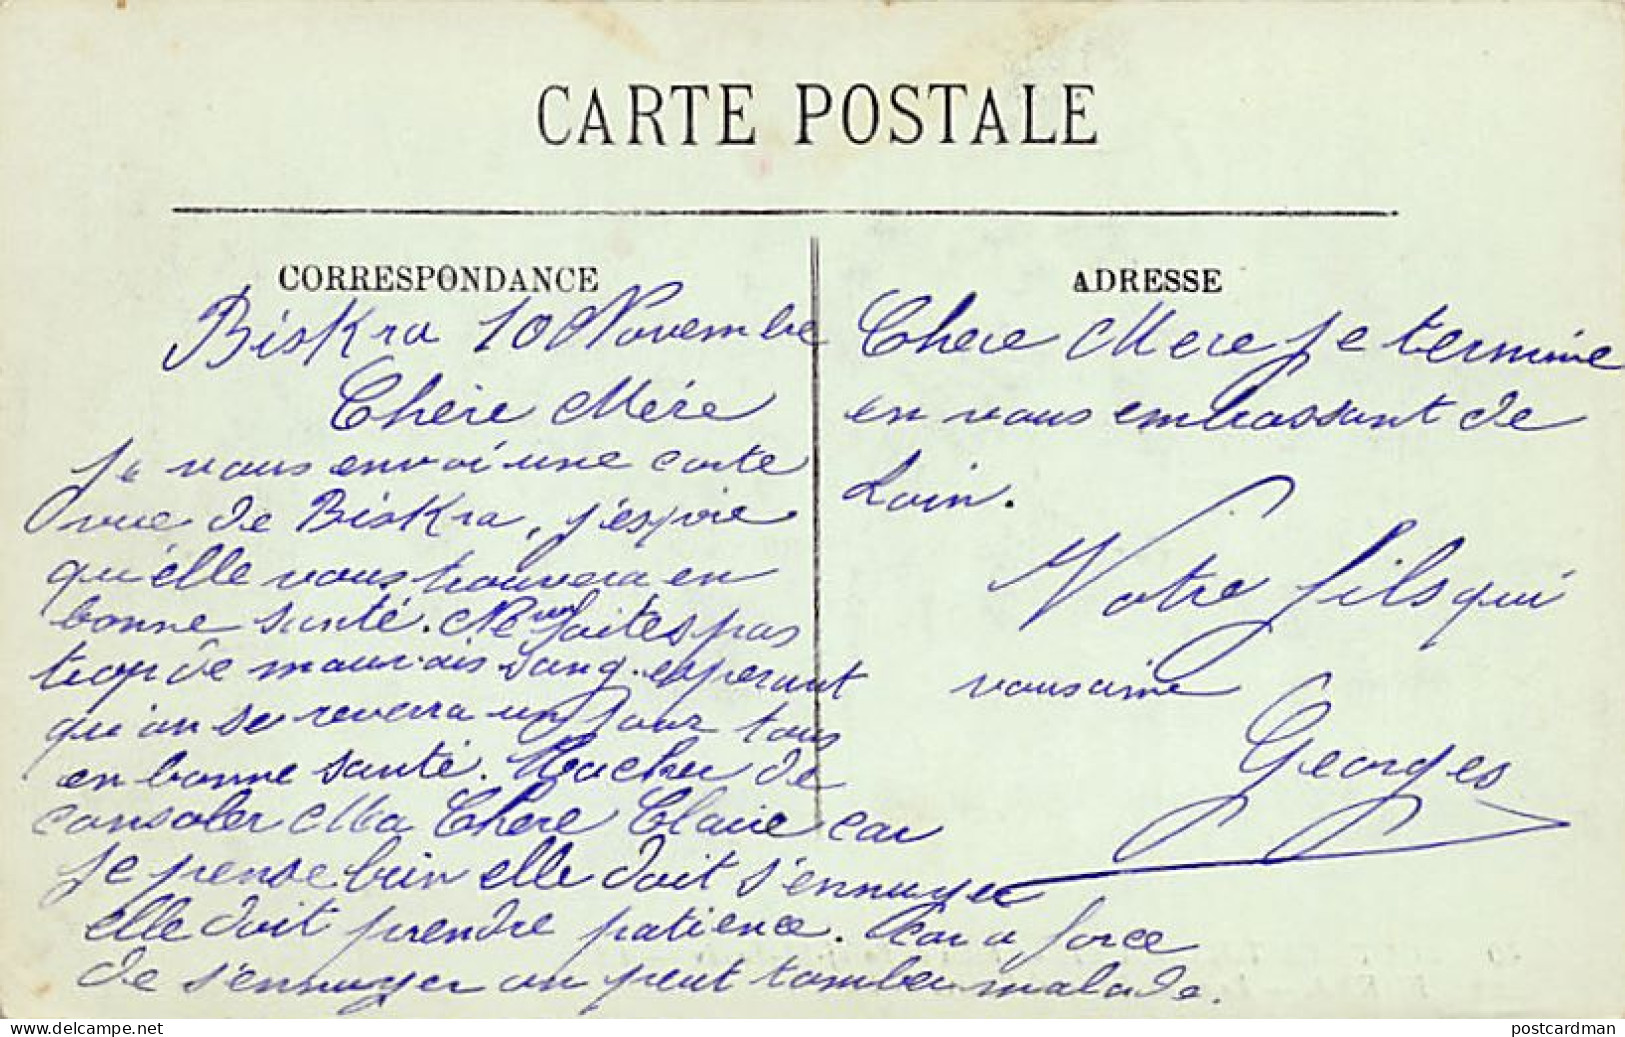 CARTE POSTALE
CORRESPONDANCE
Biskra 10 Novembre
Chère Mère
Je vous envoi une carte
vue de Biskra, j'espère
qu'elle vous trouvera en
bonne santé. Ne vous faites pas
trop de mauvais sang esperant
qu'on se reverra un jour tous
en bonne santé. Tacher de
consoler Ma Chere Claire car
je pense bien elle doit s'ennuyer
elle doit prendre patience. Car a force
de s'ennuyer on peut tomber malade.
ADRESSE
Chere Mere je termine
en vous embrassant de
Loin.
Votre fils qui
vous aime
Georges
www.delcampe.net
postcardman